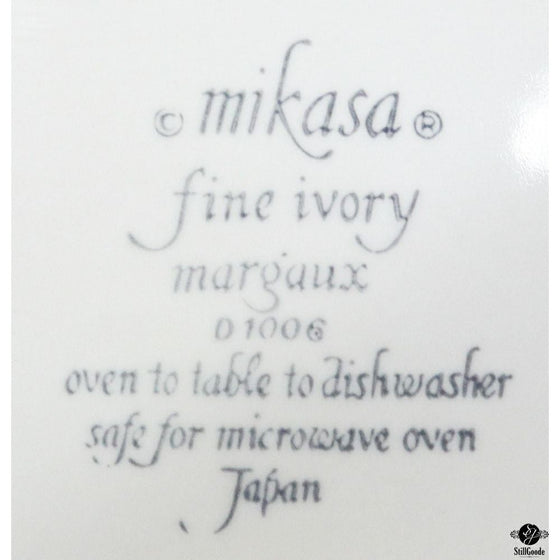 © mikasa ®
fine ivory
margaux
D 1006
oven to table to dishwasher
safe for microwave oven
Japan
StillGoode